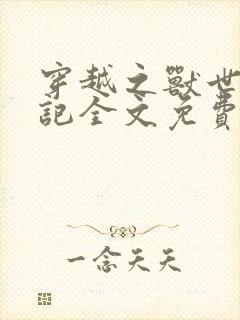 穿越之獸世
記全文免費
一念天天